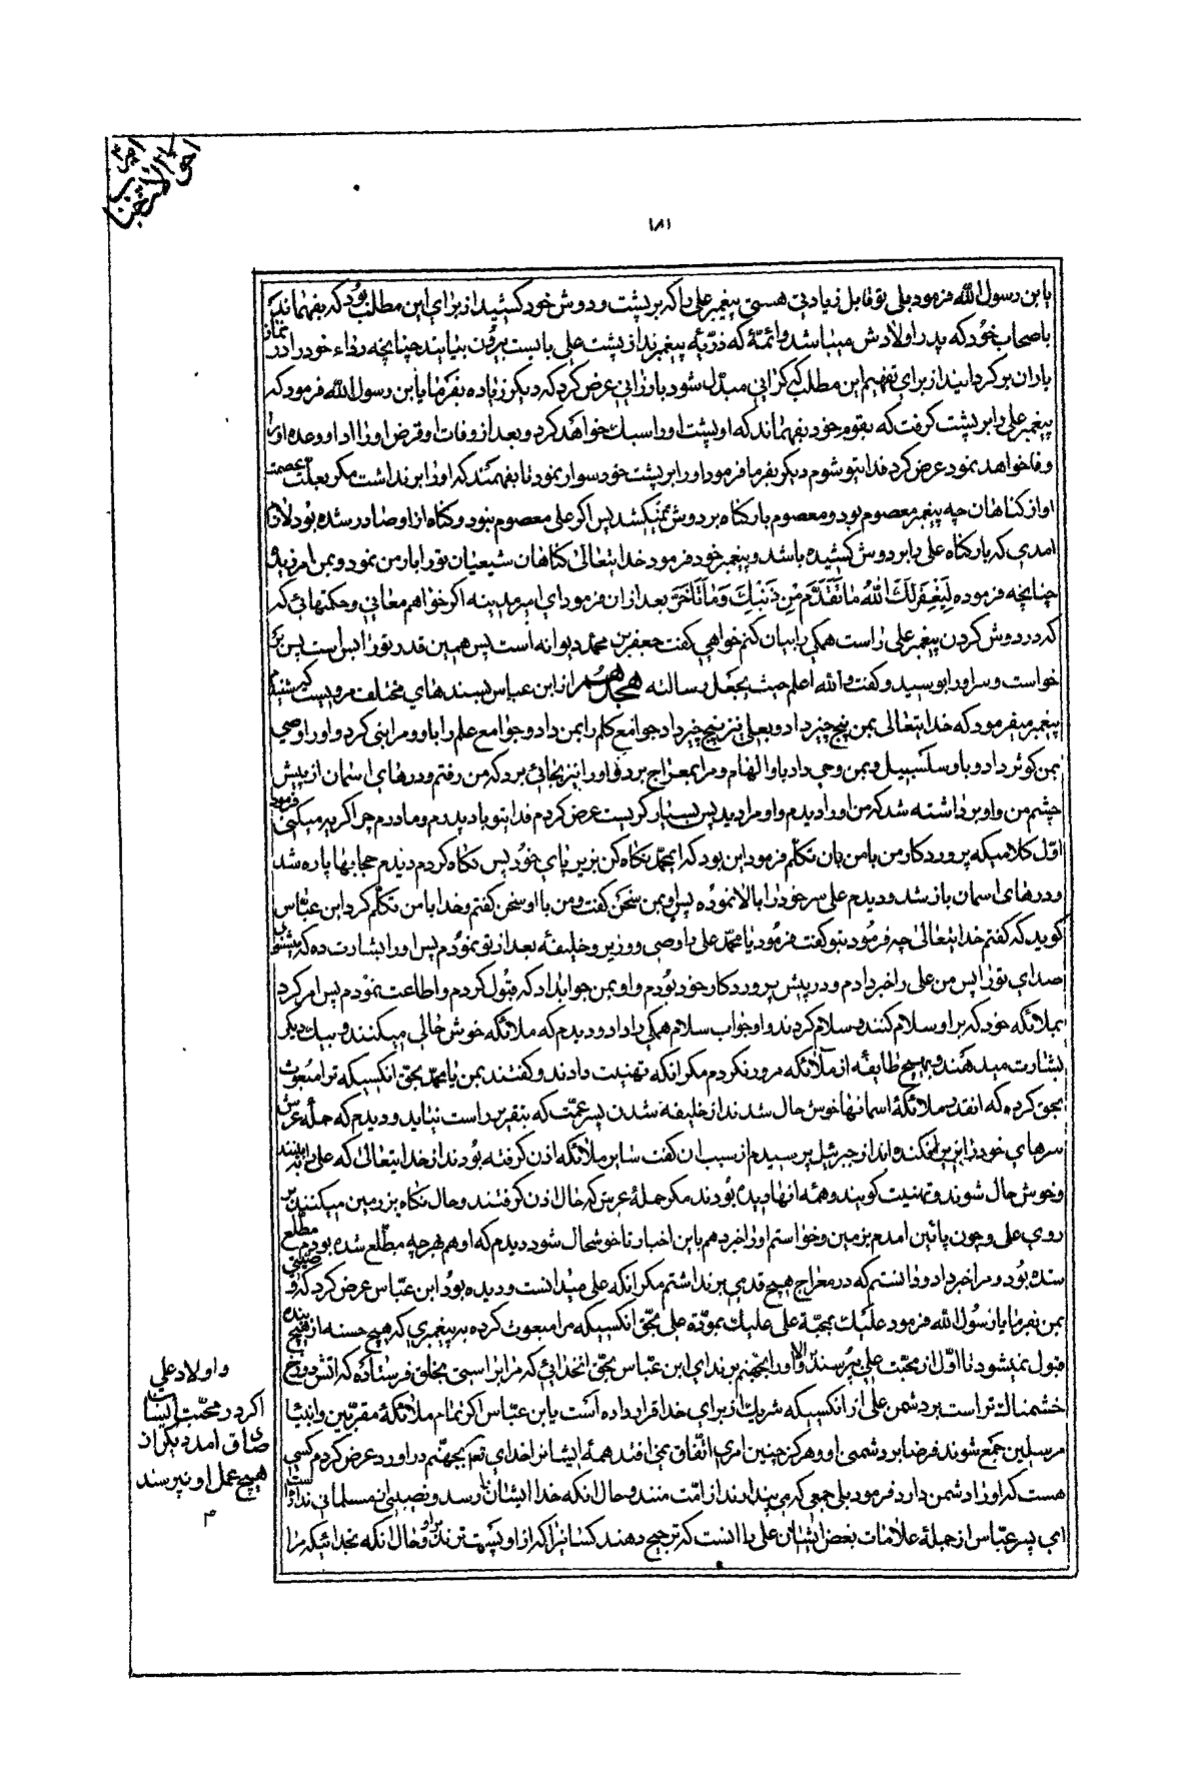 ۱۸۱
یا بن رسول الله فرمود بلی تو قابل زیادتی هستی پیغمبر علی را که بر پشت و دوش خود کشید از برای این مطلب بود که بفهماند
باصحاب خود که پدر اولادش میباشد و ائمهٔ که ذریهٔ پیغمبرند از پشت علی بایست بیرون بیایند چنانچه رداء خود را در نماز
باران بر کردانید از برای تفهیم این مطلب که کرانی مبدل شود بارزانی عرض کرد که دیکر زیاده بفرما یا بن رسول الله فرمود که
پیغمبر علی را بر پشت کرفت که بقوم خود بفهماند که او پشت او را سبک خواهد کرد و بعد از وفات او قرض او را ادا و وعده او را
وفا خواهد نمود عرض کرد فدایتو شوم دیکر بفرما فرمود او را بر پشت خود سوار نمود تا بفهمند که او را بر نداشت مکر بعلت عصمت
او از کناهان چه پیغمبر معصوم بود و معصوم بار کناه بر دوش نمیکشد پس اکر علی معصوم نبود و کناه از او صادر شده بود لازم
امدی که بار کناه علی را بر دوش کشیده باشد و پیغمبر خود فرمود خدایتعالی کناهان شیعیان تو را بار من نمود و بمن امرزید
چنانچه فرموده لِیَغْفِرَ لَكَ اللهُ مَا تَقَدَّمَ مِنْ ذَنْبِكَ وَمَا تَأَخَّرَ بعد از ان فرمود ای امیر مدینه اکر خواهم معانی و حکمتهائی که
که در دوش کردن پیغمبر علی را است همکی را بیان کنم خواهی کفت جعفر بن محمد دیوانه است پس همین قدر تو را بس است پس
خواست و سر او را بوسید و کفت والله اعلم حیث یجعل رسالته هجدهم از ابن عباس بسندهای مختلف مرویست که شنیدم
پیغمبر میفرمود که خدایتعالی بمن پنج چیز داد و بعلی نیز پنج چیز داد جوامع کلم را بمن داد و جوامع علم را باو و مرا نبی کرد و او را وصی
بمن کوثر داد و باو سلسبیل و بمن وحی داد باو الهام و مرا بمعراج برد و او را نیز بجائی برد که من رفتم و درهای اسمان از پیش
چشم من و او برداشته شد که من او را دیدم و او مرا دید پس بسیار کریست عرض کردم فدایتو باد پدرم و مادرم چرا کریه میکنی فرمود
اول کلامیکه پروردکار من با من بان تکلم فرمود این بود که ایمحمد نکاه کن بزیر پای خود پس نکاه کردم دیدم حجابها پاره شد
و درهای اسمان باز شد و دیدم علی سر خود را بالا نموده پس او بمن سخن کفت و من با او سخن کفتم و خدا با من تکلم کرد ابن عباس
کوید که کفتم خدایتعالی چه فرمود بتو کفت فرمود یا محمد علی را وصی و وزیر و خلیفه بعد از تو نمودم پس او را بشارت ده که میشنود
صدای تو را پس من علی را خبر دادم و در پیش پروردکار خود بودم و او بمن جواب داد که قبول کردم و اطاعت نمودم پس امر کرد
بملائکه خود که بر او سلام کنند و سلام کردند و او جواب سلام همکی را داد و دیدم که ملائکه خوش حالی میکنند و بیکدیکر
بشارت میدهند و بهیچ طایفه از ملائکه مرور نکردم مکر انکه تهنیت دادند و کفتند بمن یا محمد بحق انکسیکه ترا مبعوث
بحق کرده که انقدر ملائکهٔ اسمانها خوش حال شدند از خلیفه شدن پسر عمت که بتقریر راست نیاید و دیدم که حملهٔ عرش
سرهای خود را بزیر افکنده اند از جبرئیل پرسیدم از سبب ان کفت سایر ملائکه اذن کرفته بودند از خدایتعالی که علی را ببینند
و خوش حال شوند و تهنیت کویند و همه انها دیده بودند مکر حملهٔ عرش که حال اذن کرفتند و حال نکاه بزمین میکنند بر
روی علی و چون پائین امدم بزمین و خواستم او را خبر دهم باین اخبار تا خوشحال شود دیدم که او هم بهرچه مطلع شده بودم مطلع
شده بود و مرا خبر داد و دانستم که در معراج هیچ قدمی بر نداشتم مکر انکه علی میدانست و دیده بود ابن عباس عرض کرد که وصیتی
بمن بفرما یا رسول الله فرمود علیك بمحبة علی علیك بمودة علی بحق انکسیکه مرا مبعوث کرده به پیغمبری که هیچ حسنه از هیچ بنده
قبول نمیشود تا اول از محبت علی پرسند والا او را بجهنم برند ای ابن عباس بحق انخدائی که مرا براستی بخلق فرستاده که اتش دوزخ
خشمناك تر است بر دشمن علی از انکسیکه شریك از برای خدا قرار داده است یا بن عباس اکر تمام ملائکهٔ مقربین و انبیا
مرسلین جمع شوند فرضا بر دشمنی او و هرکز چنین امری اتفاق نمی افتد همهٔ ایشانرا خدای تعالی بجهنم در اورد عرض کردم کسی
هست که او را دشمن دارد فرمود بلی جمعی که می پندارند از امت منند و حال انکه خدا ایشان را رسد و نصیبی از مسلمانی نداده است
ای پسر عباس از جملهٔ علامات بغض ایشان علی را انست که ترجیح دهند کسانیرا که از او پست ترند بر او و حال انکه بخدائیکه مرا
و اولاد علی
اکر در محبت ایشان
صادق امد دیکر از
هیچ عمل او نپرسند